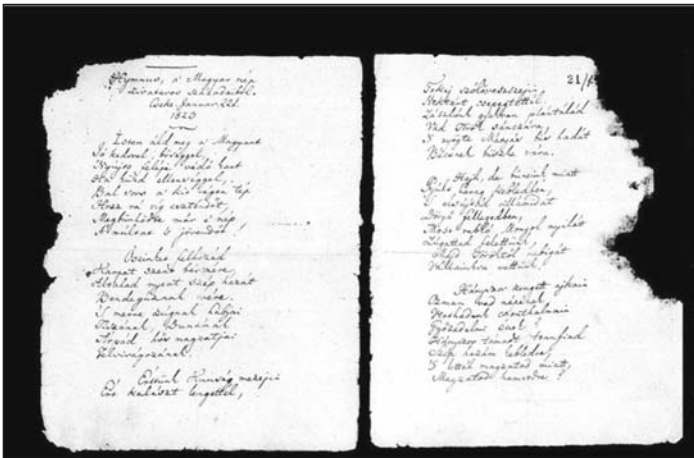 Hymnus, a' Magyar nép
zivataros századaiból.
Cseke, Januar. 22d.
1823
Isten áldd meg a' Magyart
Jó kedvvel, bőséggel,
Nyújts feléje védő kart
Ha küzd ellenséggel,
Bal sors a' kit régen tép
Hozz rá víg esztendőt,
Megbűnhődte már e' nép
A' múltat 's jövendőt!
Őseinket felhozád
Kárpát szent bérczére,
Általad nyert szép hazát
Bendegúznak vére.
'S merre zúgnak habjai
Tiszának, Dunának
Árpád hős magzatjai
Felvirágozának.
Értünk Kunság mezején
Ért kalászt lengettél,
21/
Tokaj szőlővesszein
Nektárt csepegtettél.
Zászlónk gyakran plántálád
Vad török sánczára,
'S nyögte Mátyás bús hadát
Bécsnek büszke vára.
Hajh, de bűneink miatt
Gyúlt harag kebledben,
'S elsújtád villámidat
Dörgő fellegedben,
Most rabló Mongol nyilát
Zúgattad felettünk,
Majd Töröktől rabigát
Vállainkra vettünk.
Hányszor zengett ajkain
Ozman vad népének
Vert hadunk csonthalmain
Győzedelmi ének!
Hányszor támadt tenfiad
Szép hazám kebledre,
'S lettél magzatod miatt,
Magzatod hamvvedre?